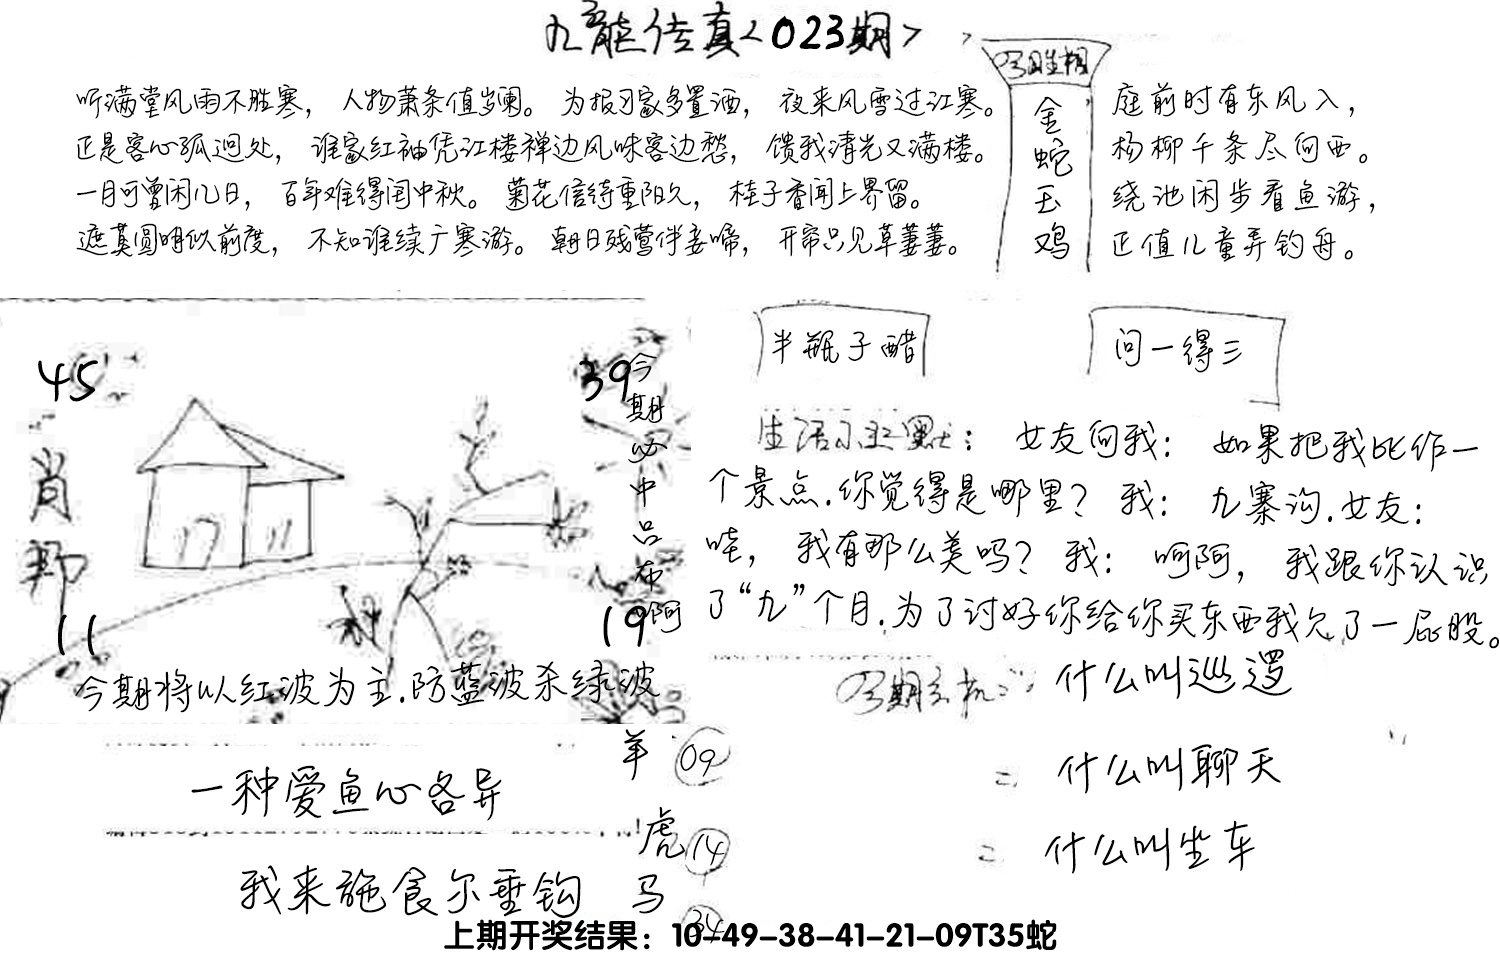 九龙传真<023期>
今期生相
金蛇玉鸡
听满堂风雨不胜寒，人物萧条值岁阑。为报习家多置酒，夜来风雪过江寒。
正是客心孤迥处，谁家红袖凭江楼禅边风味客边愁，馈我清光又满楼。
一月可曾闲几日，百年难得闰中秋。菊花信待重阳久，桂子香闻上界留。
遮莫圆明似前度，不知谁续广寒游。朝日残莺伴妾啼，开帘只见草萋萋。
庭前时有东风入，
杨柳千条尽向西。
绕池闲步看鱼游，
正值儿童弄钓舟。
45
39
肖
11
19
今期必中吕布阿
今期将以红波为主.防蓝波杀绿波
半瓶子醋
问一得三
生活小幽默：女友问我：如果把我比作一
个景点.你觉得是哪里？我：九寨沟.女友：
哇，我有那么美吗？我：呵呵，我跟你认识
了“九”个月.为了讨好你给你买东西我欠了一屁股。
今期玄机：什么叫巡逻
= 什么叫聊天
= 什么叫坐车
一种爱鱼心各异
我来施食尔垂钩
羊 09
虎 14
马 34
上期开奖结果：10-49-38-41-21-09T35蛇